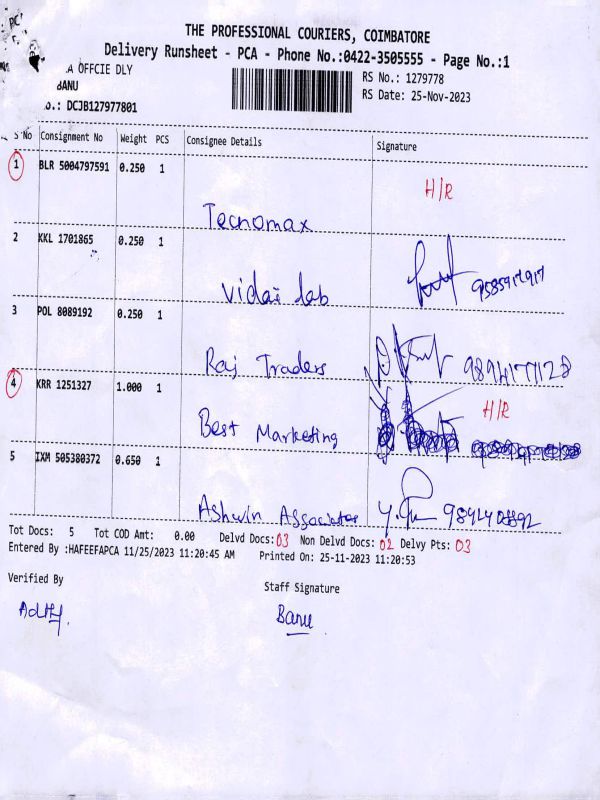 THE PROFESSIONAL COURIERS, COIMBATORE
Delivery Runsheet - PCA - Phone No.:0422-3505555 - Page No.:1
A OFFCIE DLY
RS No.: 1279778
BANU
RS Date: 25-Nov-2023
o.: DCJB127977801
S No Consignment No Weight PCS Consignee Details Signature
1 BLR 5004797591 0.250 1
H/R
Tecnomax
2 KKL 1701865 0.250 1
Vidai Lab
3 POL 8089192 0.250 1
Raj Traders
4 KRR 1251327 1.000 1
H/R
Best Marketing
5 IXM 505380372 0.650 1
Ashwin Associates
Tot Docs: 5 Tot COD Amt: 0.00 Delvd Docs: 03 Non Delvd Docs: 02 Delvy Pts: 03
Entered By :HAFEEFAPCA 11/25/2023 11:20:45 AM Printed On: 25-11-2023 11:20:53
Verified By
Staff Signature
Banu